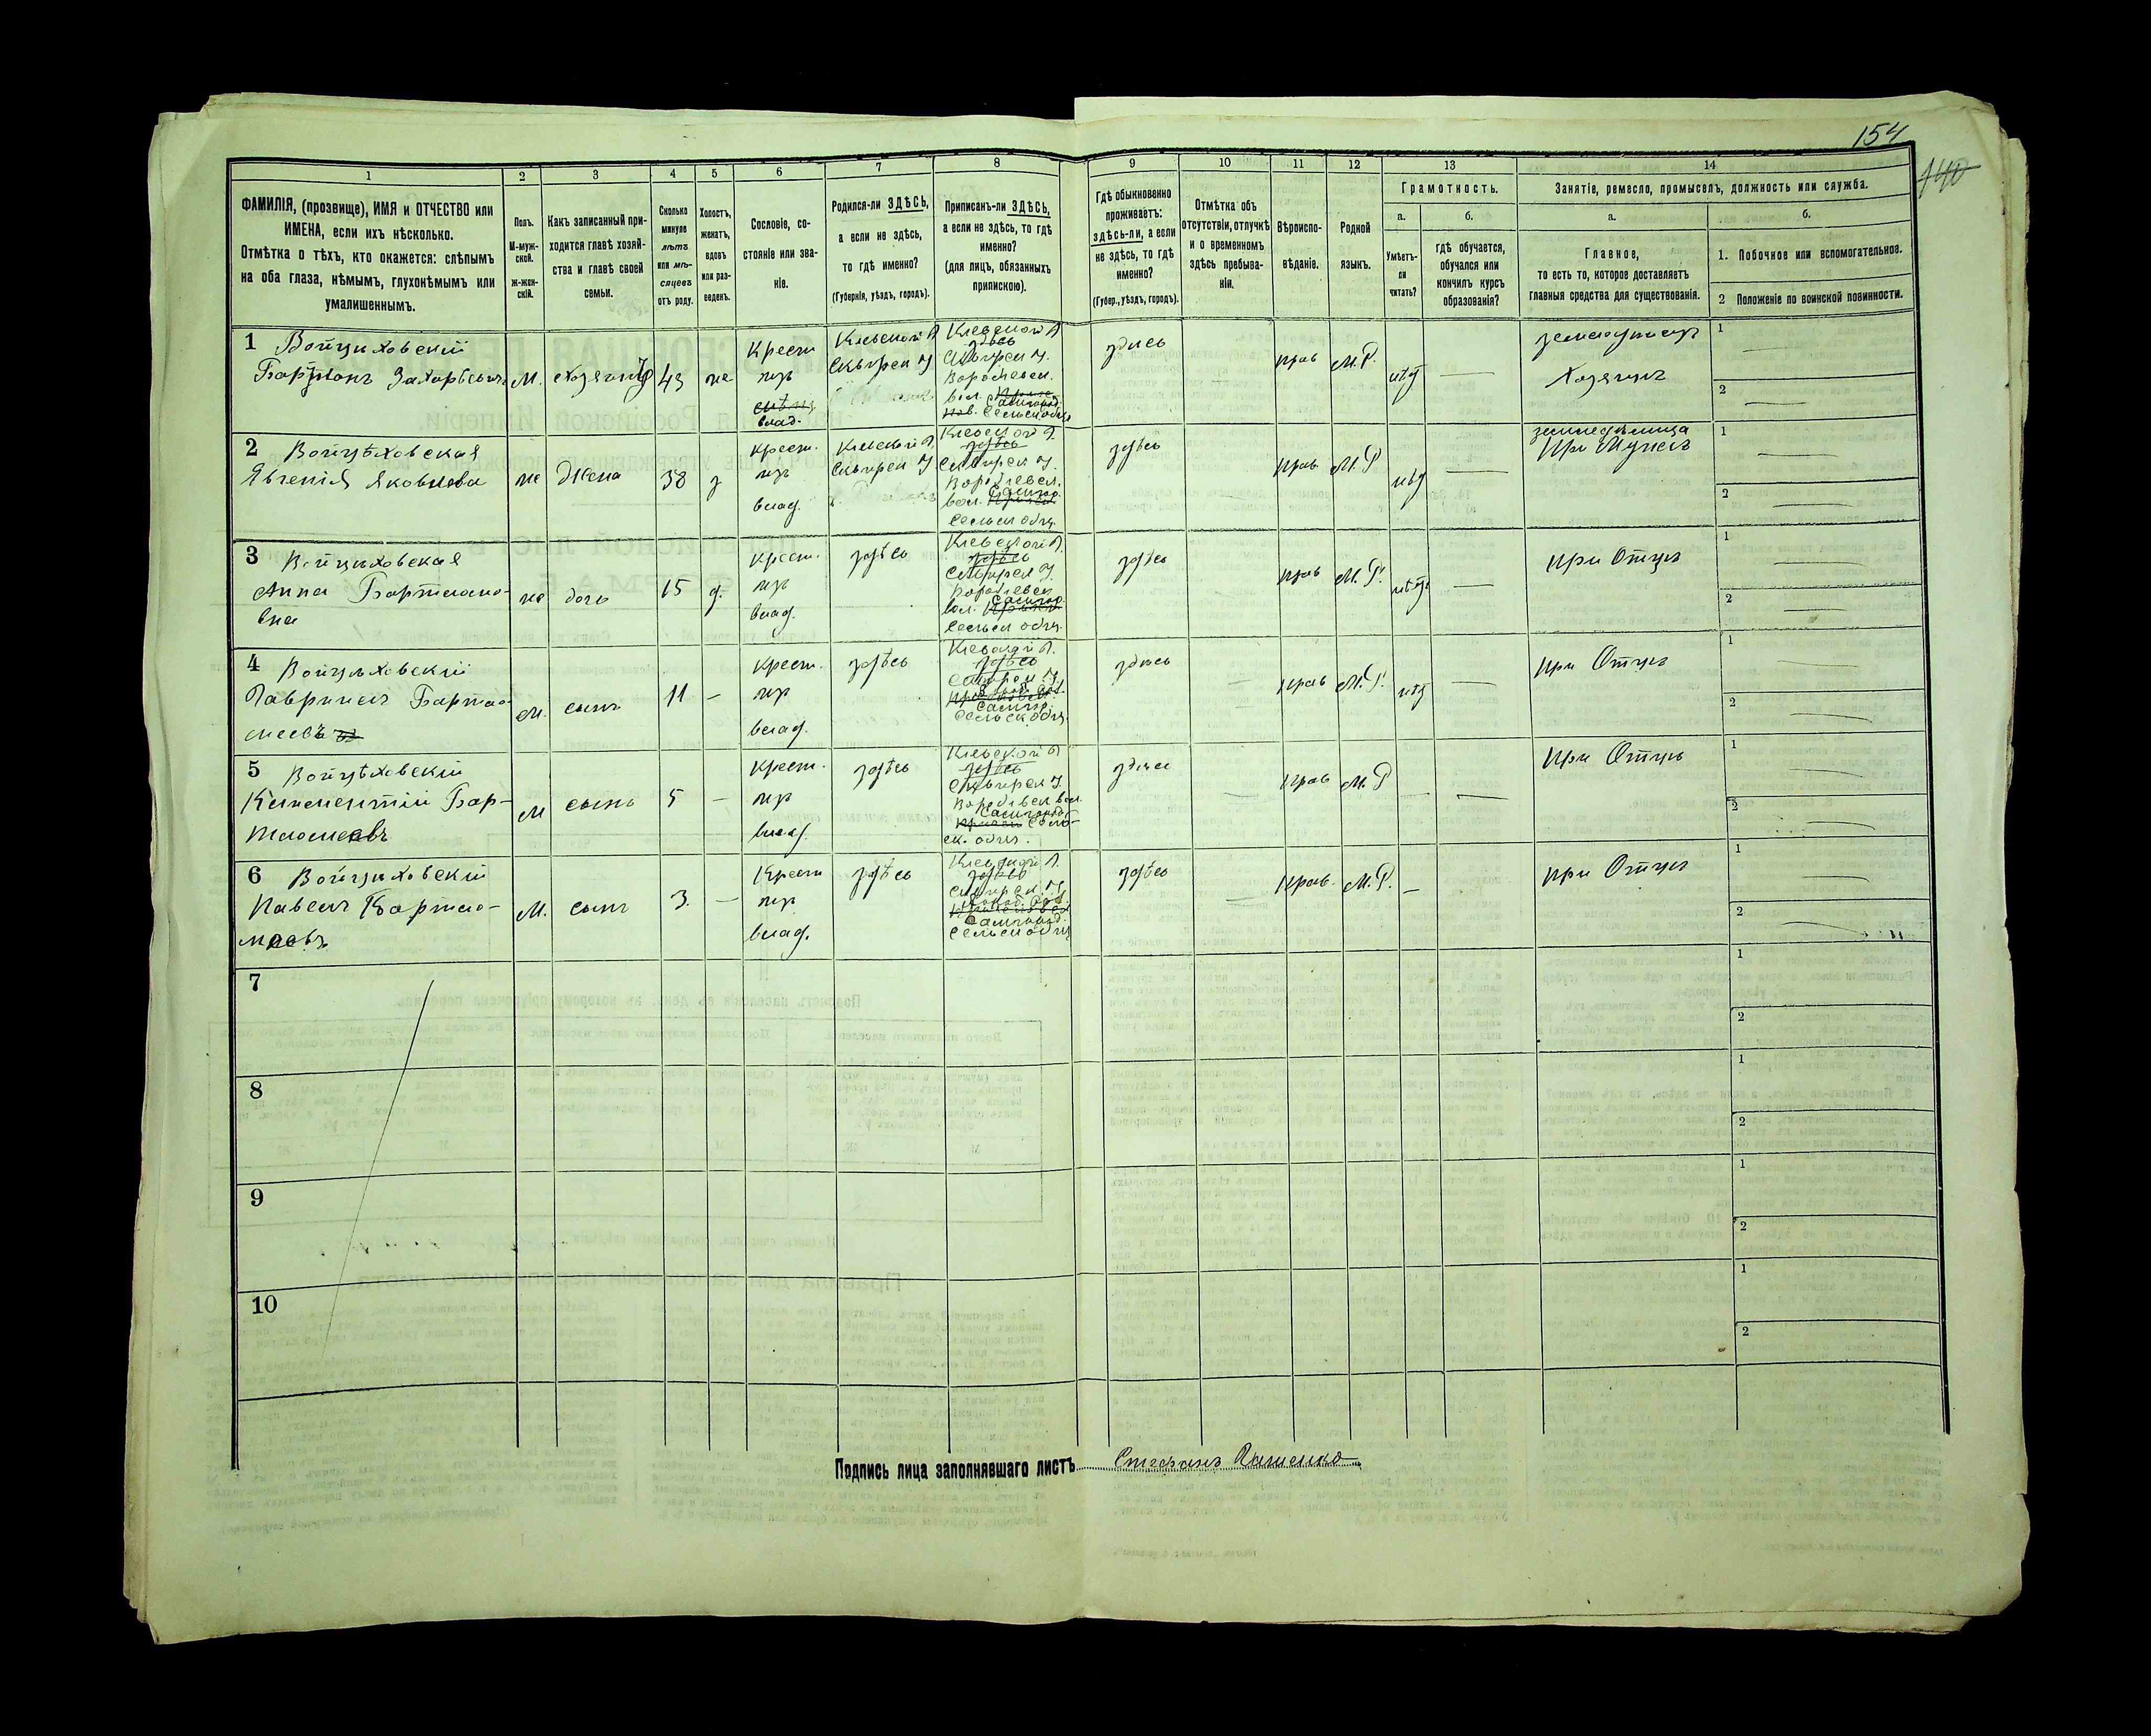 154
140
1
2
3
4
5
6
7
8
9
10
11
12
13
14
ФАМИЛІЯ, (прозвище), ИМЯ и ОТЧЕСТВО или
ИМЕНА, если ихъ нѣсколько.
Отмѣтка о тѣхъ, кто окажется: слѣпымъ
на оба глаза, нѣмымъ, глухонѣмымъ или
умалишеннымъ.
Полъ.
М-муж-
ской.
Ж-жен-
скій.
Какъ записанный при-
ходится главѣ хозяй-
ства и главѣ своей
семьи.
Сколько
минуло
лѣтъ
или мѣ-
сяцевъ
отъ роду.
Холостъ,
женатъ,
вдовъ
или раз-
веденъ.
Сословіе, со-
стояніе или зва-
ніе.
Родился-ли ЗДѢСЬ,
а если не здѣсь,
то гдѣ именно?
(Губернія, уѣздъ, городъ).
Приписанъ-ли ЗДѢСЬ,
а если не здѣсь, то гдѣ
именно?
(для лицъ, обязанныхъ
припискою).
Гдѣ обыкновенно
проживаетъ:
здѣсь-ли, а если
не здѣсь, то гдѣ
именно?
(Губер., уѣздъ, городъ).
Отмѣтка объ
отсутствіи, отлучкѣ
и о временномъ
здѣсь пребыва-
ніи.
Вѣроиспо-
вѣданіе.
Родной
языкъ.
Грамотность.
а.
Умѣетъ-
ли
читать?
б.
гдѣ обучается,
обучался или
кончилъ курсъ
образованія?
Занятіе, ремесло, промыселъ, должность или служба.
а.
Главное,
то есть то, которое доставляетъ
главныя средства для существованія.
б.
1. Побочное или вспомогательное.
2 Положеніе по воинской повинности.
1 Войцѣховскій
М.
43
же
Крест
изъ
влад.
Кіевской г
Сквирск у
Кіевской г
здѣсь
Сквирск у.
здѣсь
прав
М.Р.
нѣт
Хозяинъ
1
2
2 Войцѣховская
Явгенія Яковлева
же
Жена
38
з
крест.
изъ
влад.
Кіевской г.
Сквирск у
Кіевской г.
здѣсь
Сквирск у.
сельск общ.
здѣсь
прав
М.Р
нѣт
при Мужѣ
1
2
3 Войцѣховская
Анна Бартломо-
вна
же
дочь
15
д.
крест.
изъ
влад.
здѣсь
Кіевской г.
здѣсь
Сквирск у.
сельск общ.
здѣсь
прав
М.Р.
нѣт
при Отцѣ
1
2
4 Войцѣховскій
Гаврилъ Бартло-
меевъ
М.
сынъ
11
крест.
изъ
влад.
здѣсь
Кіевской г.
здѣсь
Сквирск у
сельск общ.
здѣсь
прав
М.Р.
нѣт
при Отцѣ
1
2
5 Войцѣховскій
Климентій Бар-
тломеевъ
М
сынъ
5
крест.
изъ
влад.
здѣсь
Кіевской г
здѣсь
Сквирск у.
ск. общ.
здѣсь
прав
М.Р
при Отцѣ
1
2
6 Войцѣховскій
Павелъ Бартло-
меевъ
М.
сынъ
3.
Крест
изъ
влад.
здѣсь
Кіевской г.
здѣсь
Сквирск у
сельск общ
здѣсь
прав.
М.Р.
при Отцѣ
1
2
7
1
2
8
1
2
9
1
2
10
1
2
Подпись лица заполнявшаго листъ